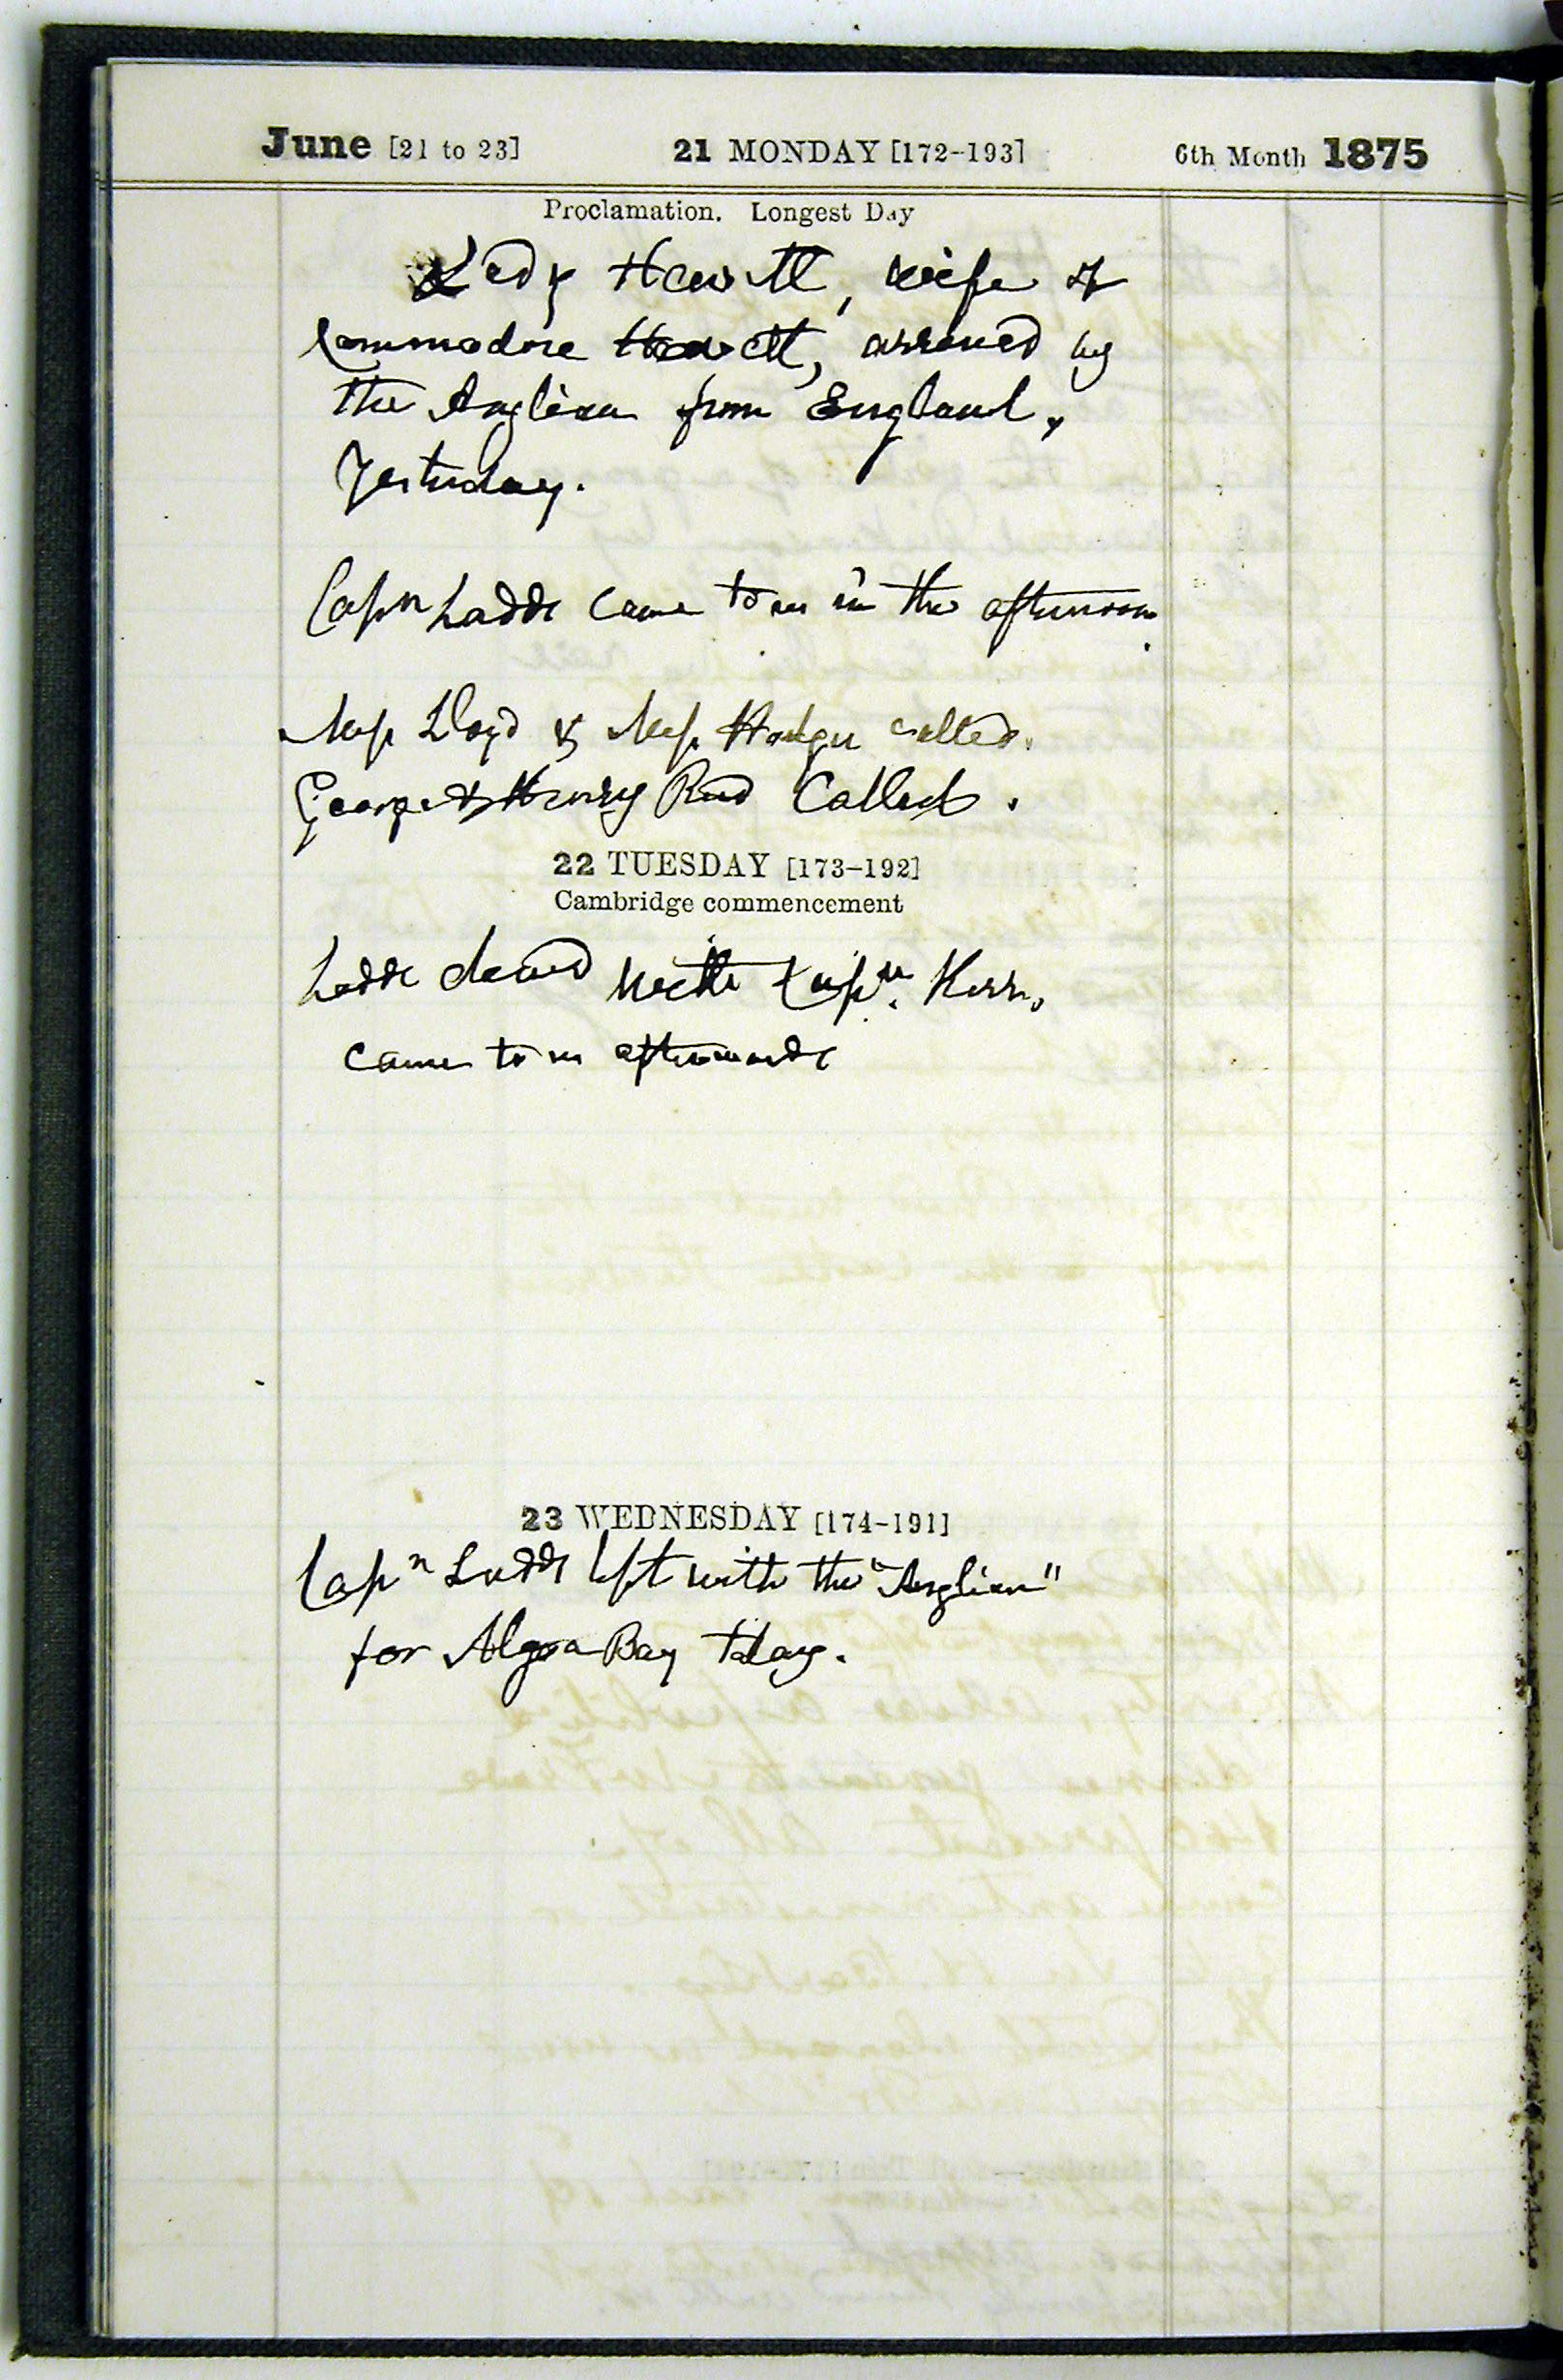 June [21 to 23] 21 MONDAY [172-193] 6th Month 1875
Proclamation. Longest Day
Lady Hewett, wife of
Commodore Hewett, arrived by
the Anglian from England,
Yesterday.
Capn Ladds came to us in the afternoon.
Miss Lloyd & Miss called.
George & Henry Rud Called.
22 TUESDAY [173-192]
Cambridge commencement
Ladds dined with Capn. Kerr,
came to us afterwards
23 WEDNESDAY [174-191]
Capn Ladds left with the "Anglian"
for Algoa Bay today.